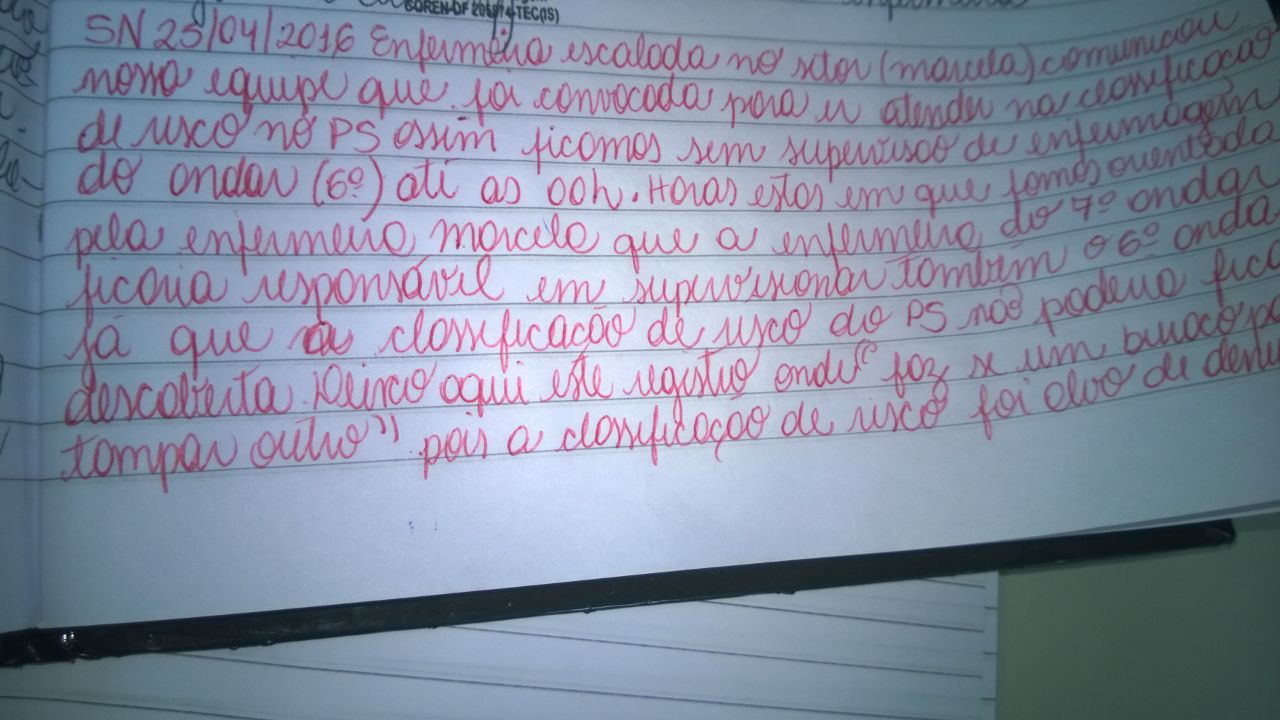 COREN-DF 206874-TEC(IS)
SN 25/04/2016 Enfermeira escalada no setor (marcela) comunicou
nossa equipe que foi convocada para ir atender na classificação
de risco no PS assim ficamos sem supervisão de enfermagem
do andar (6º) até as 00h. Horas estas em que fomos orientada
pela enfermeira marcela que a enfermeira do 7º andar
ficaria responsável em supervisionar também o 6º anda
já que a classificação de risco do PS não poderia fica
descoberta. Deixo aqui este registro onde “faz se um buraco pa
tampar outro” pois a classificação de risco foi alvo de denu